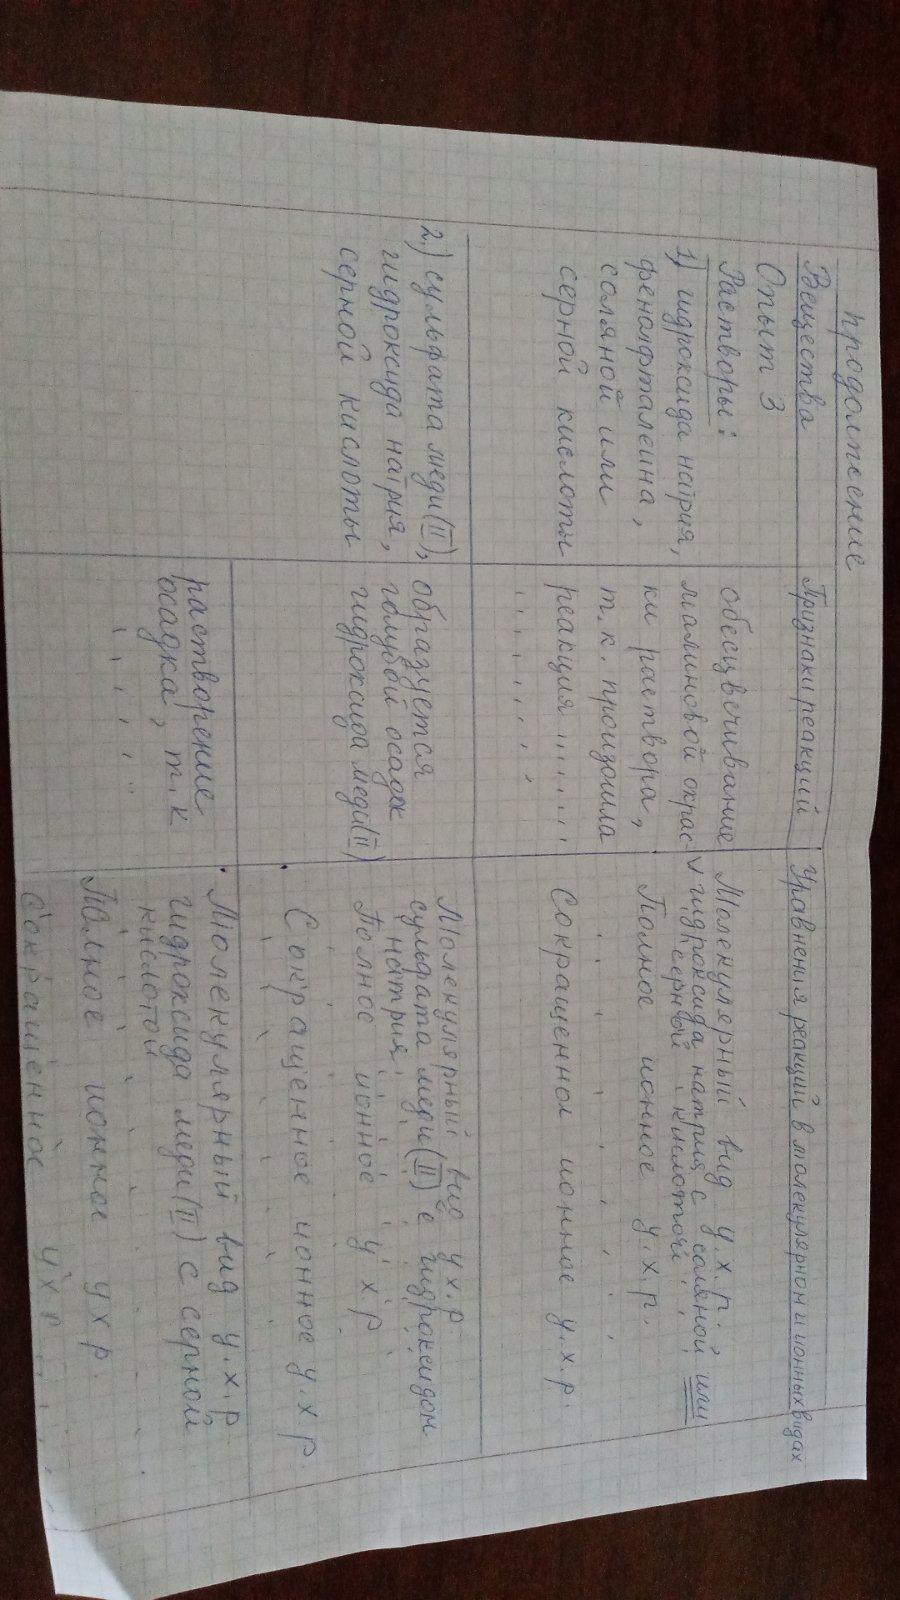 продолжение
Вещества
Опыт 3
Растворы:
1) гидроксида натрия,
фенолфталеина,
соляной или
серной кислоты
2.) сульфата меди(II),
гидроксида натрия,
серной кислоты
Признаки реакций
обесцвечивание
малиновой окрас-
ки раствора,
т.к. произошла
реакция
образуется
голубой осадок
гидроксида меди(II)
растворение
осадка, т.к
Уравнения реакций в молекулярном и ионных видах
Молекулярный вид у.х.р.
гидроксида натрия с соляной или
серный кислотой
Полное ионное у.х.р.
Сокращенное ионное у.х.р.
Молекулярный вид у.х.р.
сульфата меди(II) с гидроксидом
натрия
Полное ионное у х р
Сокращенное ионное у.х р.
Молекулярный вид у.х.р.
гидроксида меди(II) с серной
кислотой
Полное ионное у х р.
Сокращенное у х р